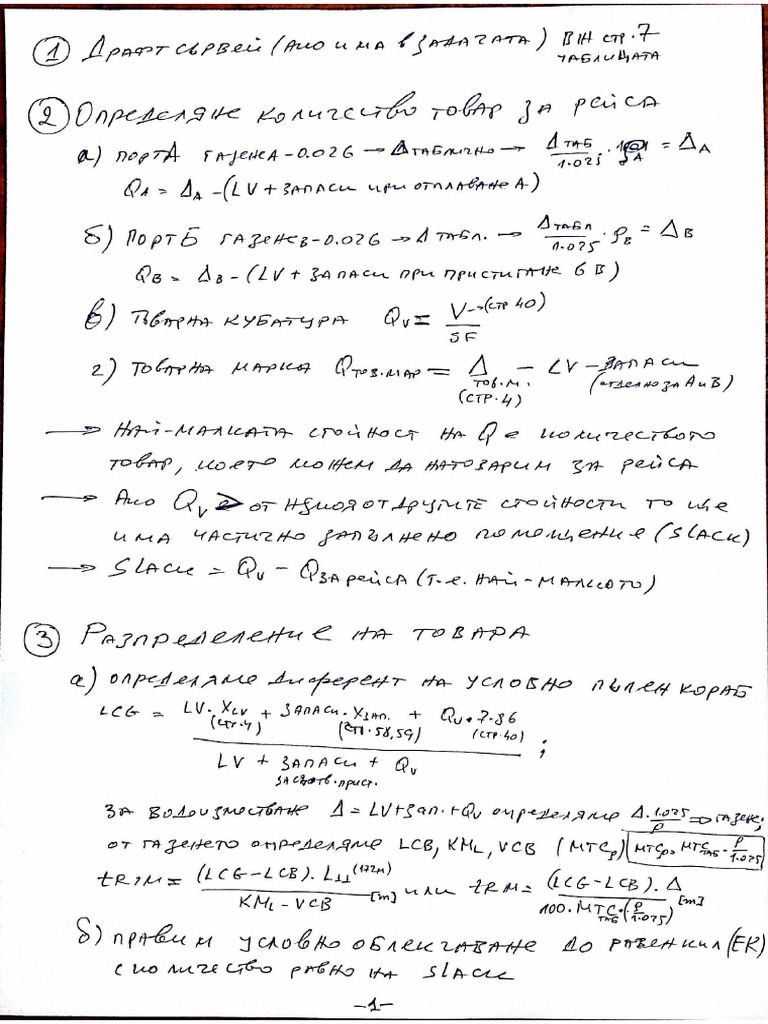 ① Драфт сървей (ако има в задачата) виж стр. 7
таблицата
② Определяне количество товар за рейса
а) порт А газене A - 0.026 → Δ таблично → Δ таб / 1.025 · ρA = ΔA
QA = ΔA - (LV + запаси при отплаване А)
б) порт Б газене B - 0.026 → Δ табл. → Δ табл / 1.025 · ρB = ΔB
QB = ΔB - (LV + запаси при пристигане в B)
в) Товарна кубатура QV = V → (стр 40) / SF
г) товарна марка Q тов. мар = Δ тов. м. (стр. 4) - LV - запаси (отделно за А и В)
→ Най-малката стойност на Q е количеството
товар, което можем да натоварим за рейса
→ Ако QV > от някоя от другите стойности то ще
има частично запълнено помещение (Slack)
→ Slack = QV - Q за рейса (т.е. най-малкото)
③ Разпределение на товара
а) определяме диферент на условно пълен кораб
LCG = LV · XLV (стр. 4) + запаси · X зап. (стр. 58, 59) + QV · 7.86 (стр. 40)
LV + запаси за съотв. прист. + QV ;
за водоизместване Δ = LV + зап. + QV определяме Δ · 1.025 / ρ ⇒ газене;
от газенето определяме LCB, KML, VCB (MTCρ) MTCρ = MTC таб · ρ / 1.025
tRIM = (LCG - LCB) · L⊥⊥ (172м) / KML - VCB [m] или tRIM = (LCG - LCB) · Δ / 100 · MTC таб · (ρ / 1.025) [m]
б) правим условно облекчаване до равен кил (ЕК)
с количество равно на Slack
-1-